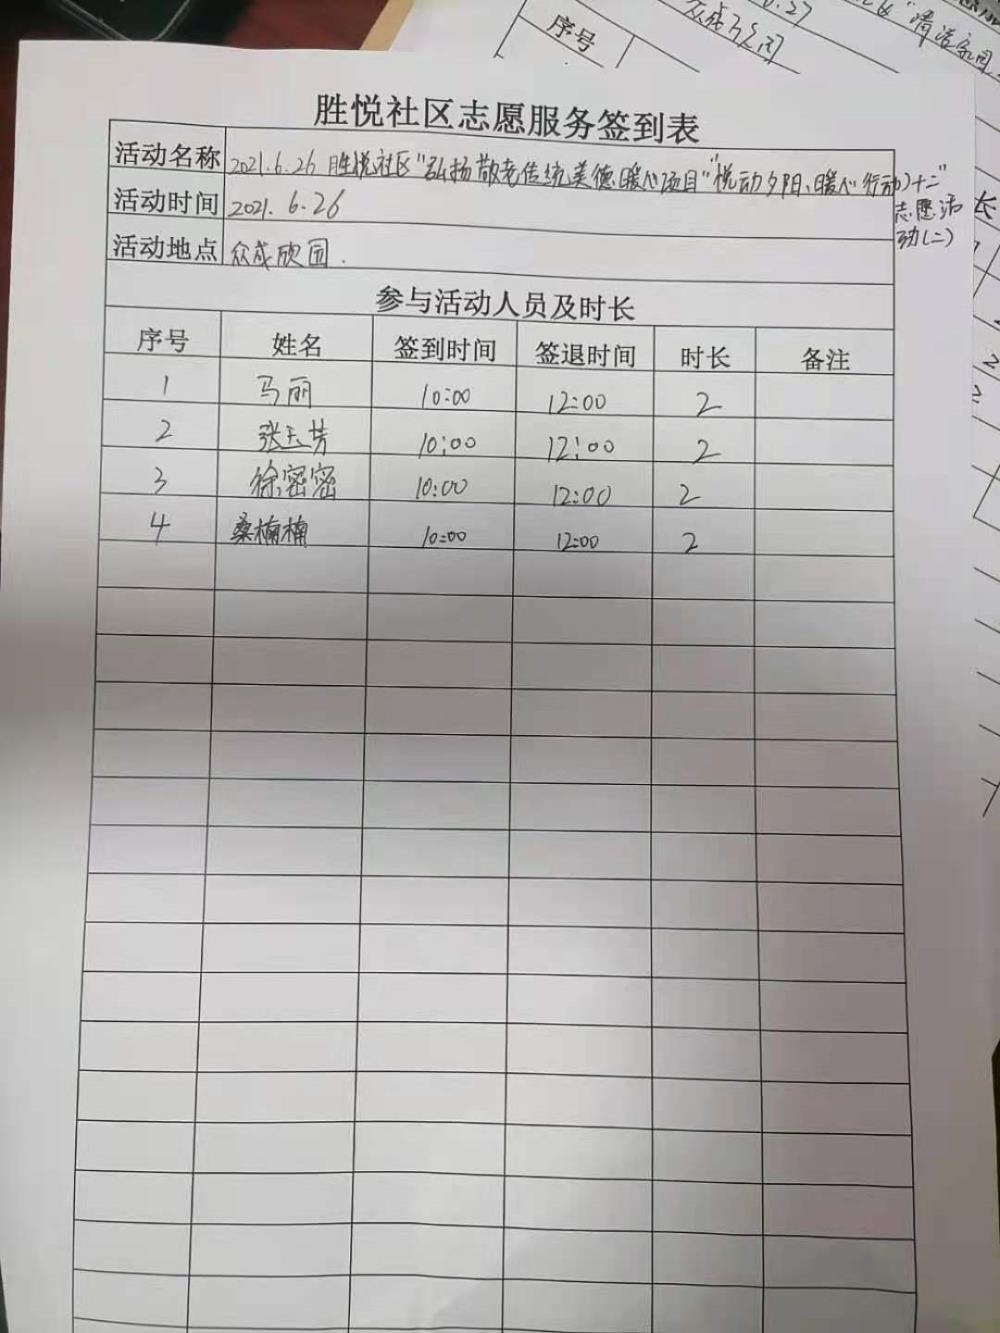 序号
胜悦社区志愿服务签到表
活动名称 2021.6.26 胜悦社区"弘扬敬老传统美德、暖心项目"悦动夕阳、暖心行动)十二"
志愿活
动(二)
活动时间 2021.6.26
活动地点 众成欣园.
参与活动人员及时长
序号 姓名 签到时间 签退时间 时长 备注
1 马丽 10:00 12:00 2
2 张玉芳 10:00 12:00 2
3 徐密密 10:00 12:00 2
4 桑楠楠 10:00 12:00 2